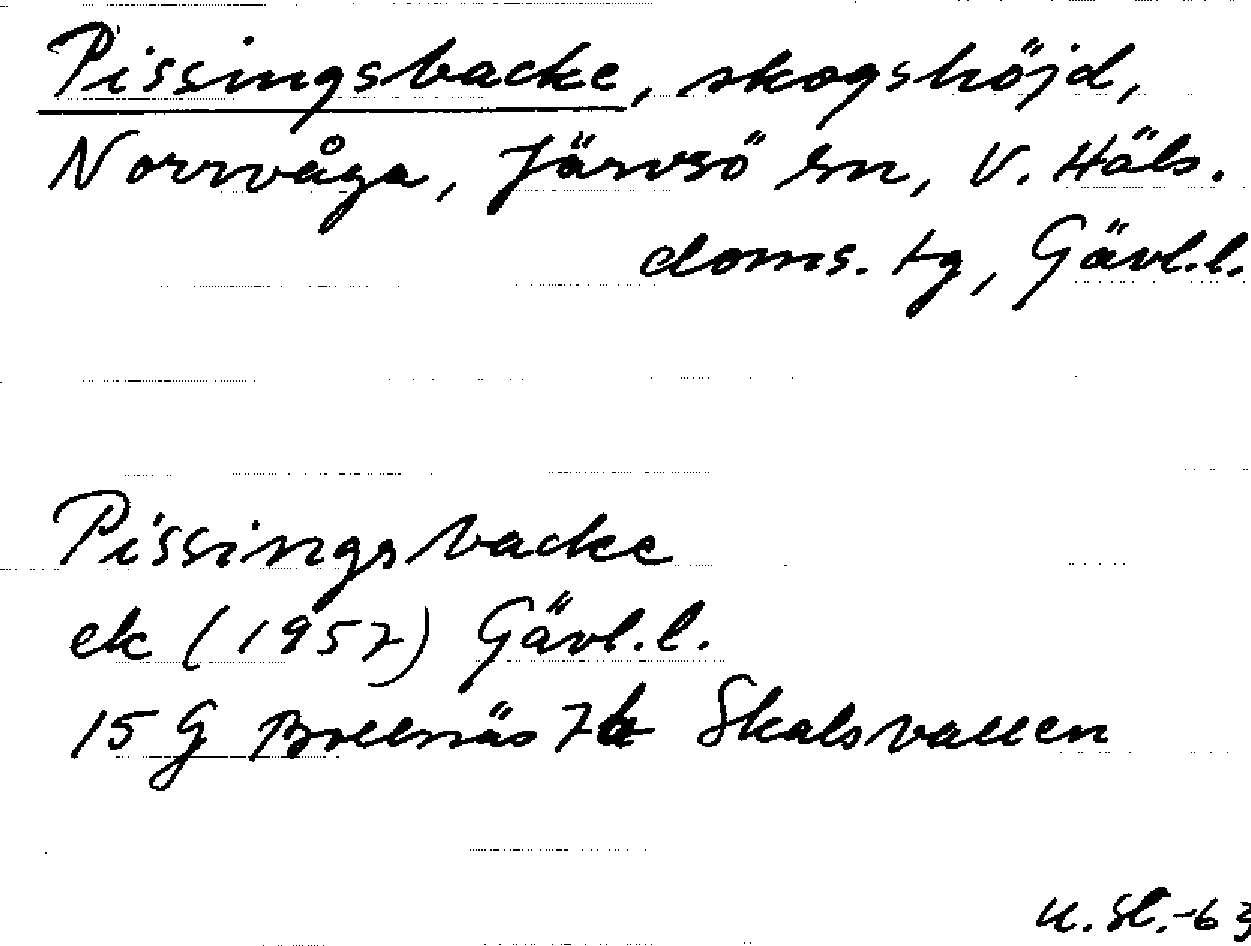 Pissingsbacke, skogshöjd,
Norrvåga, Järvsö sn, V. Häls.
doms. tg, Gävl.l.
Pissingsbacke
ek (1957) Gävl.l.
15 G Bollnäs 7h Skalsvallen
U. Sl. -63